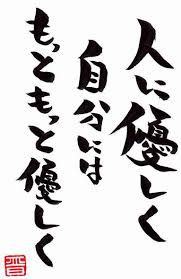 人に優しく
自分には
もっともっと優しく